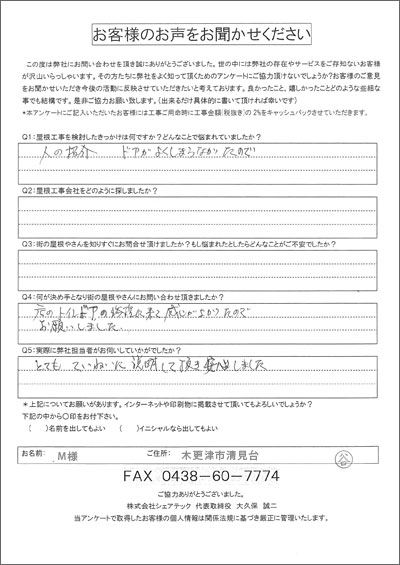 お客様のお声をお聞かせください
この度は弊社にお問い合わせを頂き誠にありがとうございました。世の中には弊社の存在やサービスをご存知ないお客様
が沢山いらっしゃいます。その方たちに弊社をよく知って頂くためのアンケートにご協力頂けないでしょうか?お客様のご意見
をお聞かせいただき今後の活動に反映させていただきたいと考えております。良かったこと、嬉しかったことどのような些細な
事でも結構です。是非ご協力お願い致します。(出来るだけ具体的に書いて頂ければ幸いです)
*本アンケートにご記入いただいたお客様には工事ご用命時に工事金額(税抜き)の2%をキャッシュバックさせていただきます。
Q1:屋根工事を検討したきっかけは何ですか?どんなことで悩まれていましたか?
人の紹介 ドアがよくしまらなかったので
Q2:屋根工事会社をどのように探しましたか?
Q3:街の屋根やさんを知りすぐにお問合せ頂けましたか?もし悩まれたとしたらどんなことがご不安でしたか?
Q4:何が決め手となり街の屋根やさんにお問い合わせ頂きましたか?
トイレドアの修復に来て感じがよかったので
お願いしました
Q5:実際に弊社担当者がお伺いしていかがでしたか?
とても ていねいに説明して頂き しました
*上記についてお願いがあります。インターネットや印刷物に掲載させて頂いてもよろしいでしょうか?
下記の中から〇印をお付下さい。
( )名前を出してもよい ( )イニシャルなら出してもよい
お名前: M様 ご住所: 木更津市清見台
谷
FAX 0438-60-7774
ご協力ありがとうございました。
株式会社シェアテック 代表取締役 大久保 誠二
当アンケートで取得したお客様の個人情報は関係法規に基づき厳正に管理いたします。